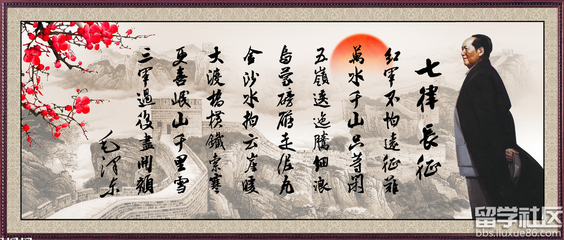 七律 长征
红军不怕远征难
萬水千山只等闲
五嶺逶迤腾细浪
乌蒙磅礴走泥丸
金沙水拍云崖暖
大渡橋横鐵索寒
更喜岷山千里雪
三军過後盡開顔
毛泽东
留学社区
bbs.liuxue86.com